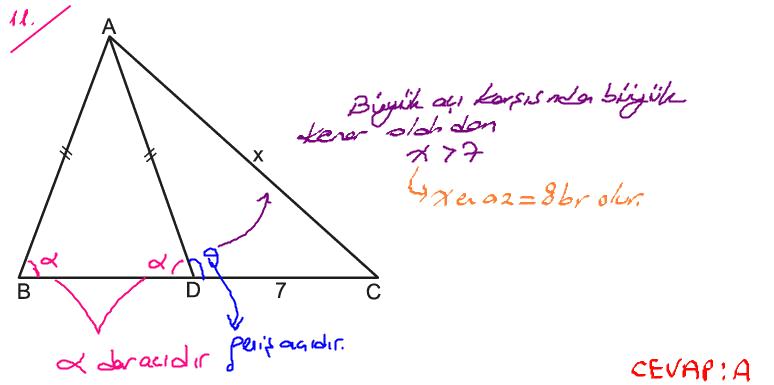 11.
A
Büyük açı karşısında büyük
kenar olduğundan
x > 7
x
↳ x en az = 8 br olur.
α α θ
B D 7 C
α dar açıdır geniş açıdır.
CEVAP: A